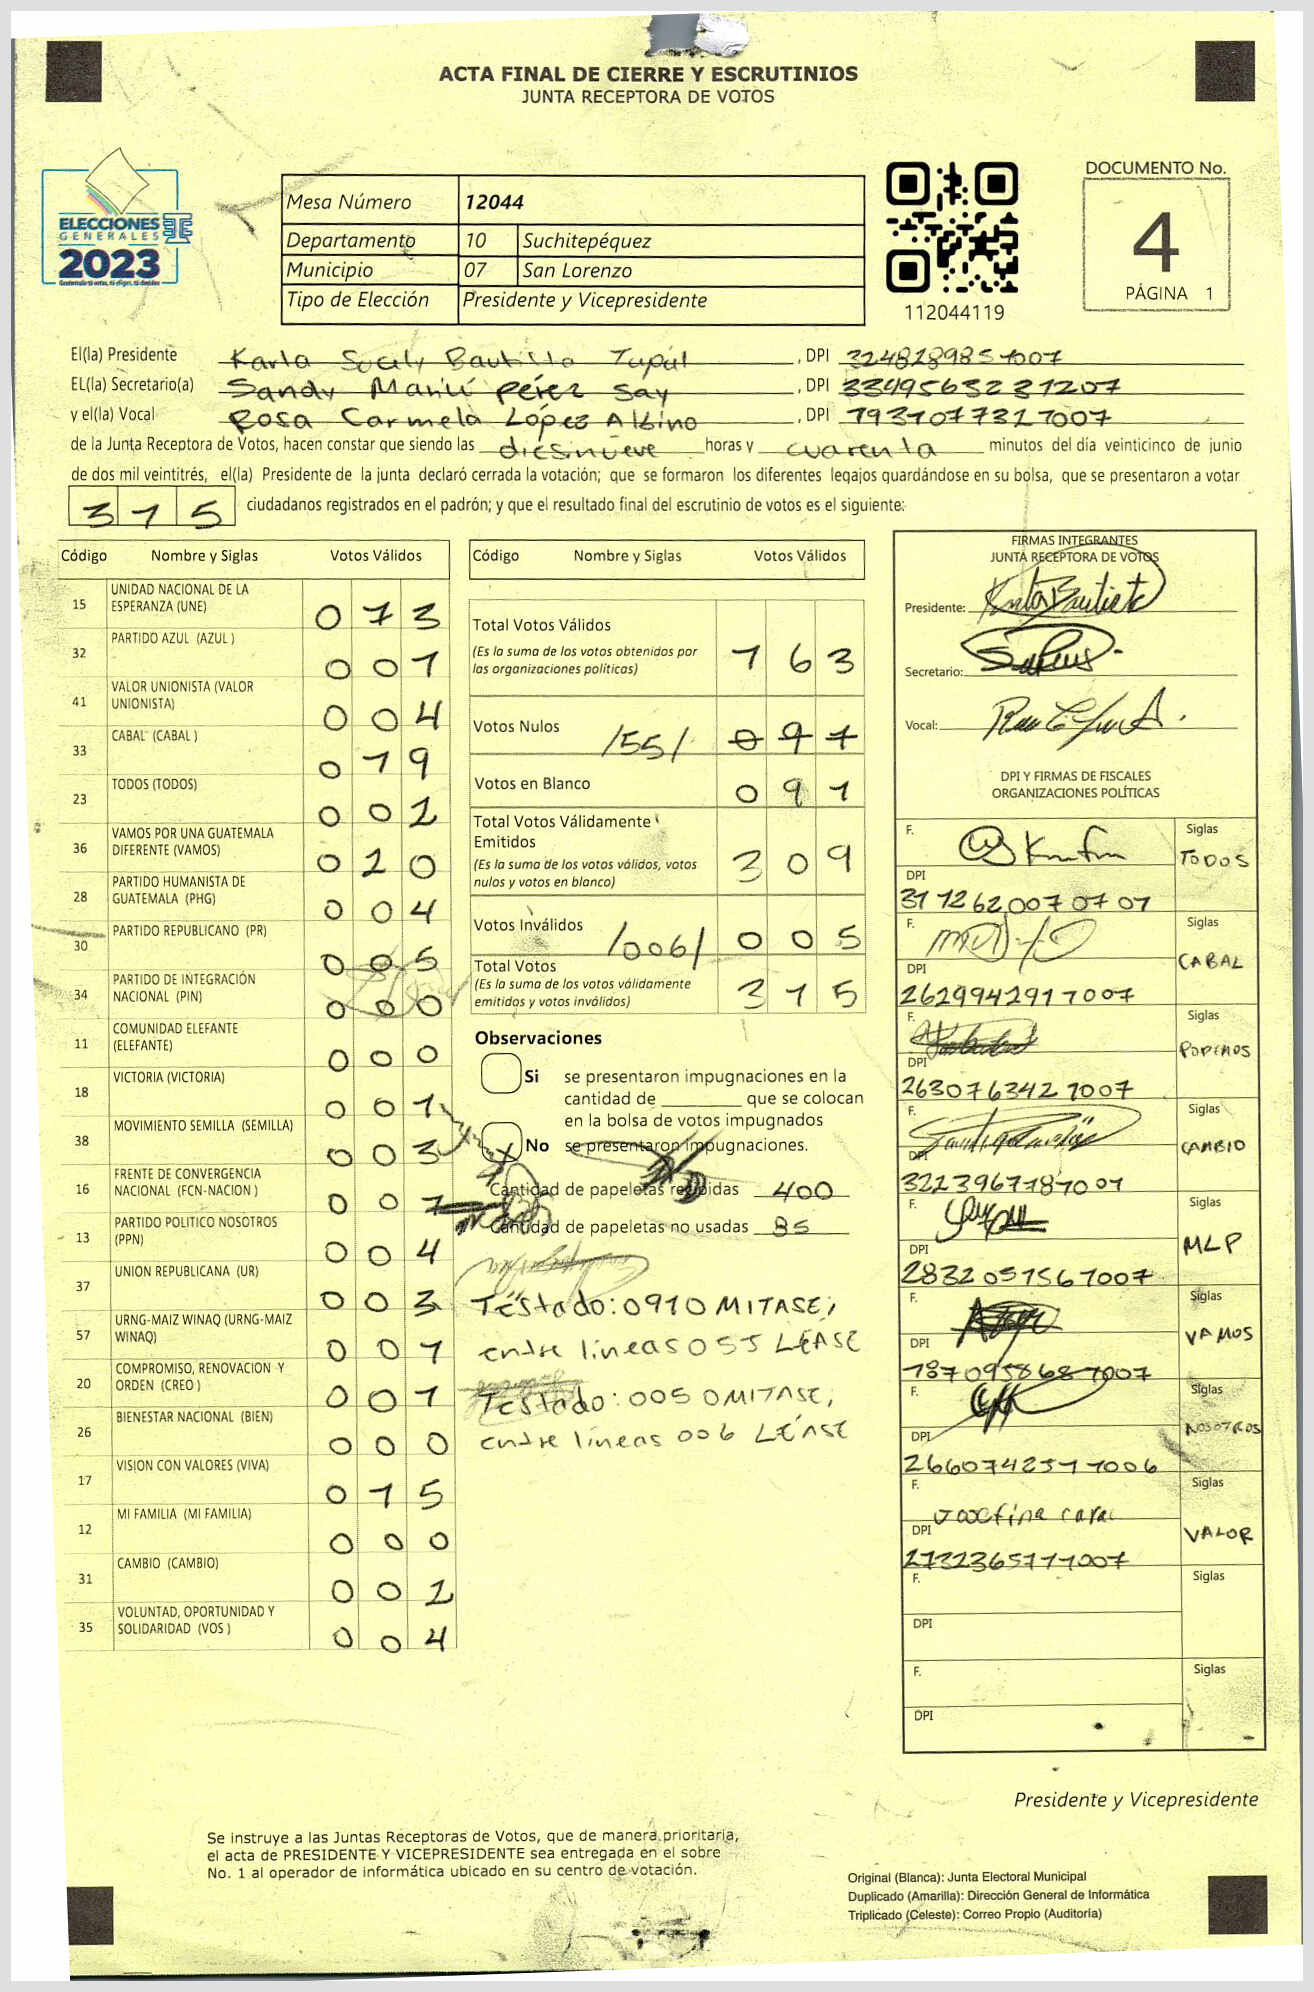 ACTA FINAL DE CIERRE Y ESCRUTINIOS
JUNTA RECEPTORA DE VOTOS
ELECCIONES
GENERALES
2023
Mesa Número 12044
Departamento 10 Suchitepéquez
Municipio 07 San Lorenzo
Tipo de Elección Presidente y Vicepresidente
112044119
DOCUMENTO No.
4
PÁGINA 1
El(la) Presidente Karla Sucely Bautista Tupúl, DPI 3248289851007
EL(la) Secretario(a) Sandy Marilí Pérez Say, DPI 3349563231207
y el(la) Vocal Rosa Carmela López Albino, DPI 1931077321007
de la Junta Receptora de Votos, hacen constar que siendo las diesinueve horas y cuarenta minutos del día veinticinco de junio
de dos mil veintitrés, el(la) Presidente de la junta declaró cerrada la votación; que se formaron los diferentes legajos guardándose en su bolsa, que se presentaron a votar
315 ciudadanos registrados en el padrón; y que el resultado final del escrutinio de votos es el siguiente:
Código Nombre y Siglas Votos Válidos
15 UNIDAD NACIONAL DE LA ESPERANZA (UNE) 073
32 PARTIDO AZUL (AZUL ) 001
41 VALOR UNIONISTA (VALOR UNIONISTA) 004
33 CABAL (CABAL ) 019
23 TODOS (TODOS) 002
36 VAMOS POR UNA GUATEMALA DIFERENTE (VAMOS) 020
28 PARTIDO HUMANISTA DE GUATEMALA (PHG) 004
30 PARTIDO REPUBLICANO (PR) 005
34 PARTIDO DE INTEGRACIÓN NACIONAL (PIN) 000
11 COMUNIDAD ELEFANTE (ELEFANTE) 000
18 VICTORIA (VICTORIA) 001
38 MOVIMIENTO SEMILLA (SEMILLA) 003
16 FRENTE DE CONVERGENCIA NACIONAL (FCN-NACION ) 007
13 PARTIDO POLITICO NOSOTROS (PPN) 004
37 UNION REPUBLICANA (UR) 003
57 URNG-MAIZ WINAQ (URNG-MAIZ WINAQ) 001
20 COMPROMISO, RENOVACION Y ORDEN (CREO ) 001
26 BIENESTAR NACIONAL (BIEN) 000
17 VISION CON VALORES (VIVA) 015
12 MI FAMILIA (MI FAMILIA) 000
31 CAMBIO (CAMBIO) 002
35 VOLUNTAD, OPORTUNIDAD Y SOLIDARIDAD (VOS ) 004
Código Nombre y Siglas Votos Válidos
Total Votos Válidos 163
(Es la suma de los votos obtenidos por
las organizaciones políticas)
Votos Nulos /55/
Votos en Blanco 091
Total Votos Válidamente
Emitidos 309
(Es la suma de los votos válidos, votos
nulos y votos en blanco)
Votos Inválidos /006/ 005
Total Votos 315
(Es la suma de los votos válidamente
emitidos y votos inválidos)
Observaciones
Si se presentaron impugnaciones en la
cantidad de ________ que se colocan
en la bolsa de votos impugnados
X No se presentaron impugnaciones.
Cantidad de papeletas recibidas 400
Cantidad de papeletas no usadas 85
Téstado: 091 OMITASE;
entre líneas 055 LÉASE
Testado: 005 OMITASE;
entre líneas 006 LÉASE
FIRMAS INTEGRANTES
JUNTA RECEPTORA DE VOTOS
Presidente:
Secretario:
Vocal:
DPI Y FIRMAS DE FISCALES
ORGANIZACIONES POLÍTICAS
F. Siglas TODOS
DPI 3112620070701
F. Siglas CABAL
DPI 2629942911007
F. Siglas PODEMOS
DPI 2630763421007
F. Siglas CAMBIO
DPI 3223967787007
F. Siglas MLP
DPI 2832051561007
F. Siglas VAMOS
DPI 1870958681007
F. Siglas NOSOTROS
DPI 2660742511006
F. Siglas VALOR
DPI 2732365711007
F. Siglas
DPI
F. Siglas
DPI
Presidente y Vicepresidente
Se instruye a las Juntas Receptoras de Votos, que de manera prioritaria,
el acta de PRESIDENTE Y VICEPRESIDENTE sea entregada en el sobre
No. 1 al operador de informática ubicado en su centro de votación.
Original (Blanca): Junta Electoral Municipal
Duplicado (Amarilla): Dirección General de Informática
Triplicado (Celeste): Correo Propio (Auditoría)